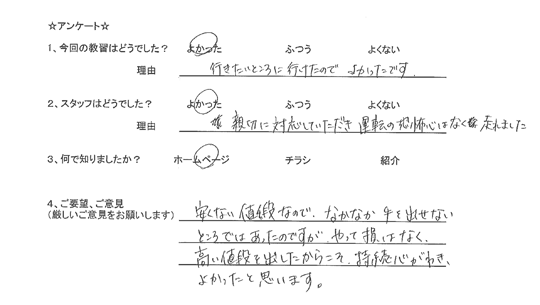 ☆アンケート☆
1、今回の教習はどうでした? よかった ふつう よくない
理由 行きたいところに行けたので よかったです
2、スタッフはどうでした? よかった ふつう よくない
理由 親切に対応していただき 運転の恐怖心はなく 走れました
3、何で知りましたか? ホームページ チラシ 紹介
4、ご要望、ご意見
(厳しいご意見をお願いします)
安くない値段なので、なかなか手を出せない
ところではあったのですが、やって損はなく、
高い値段を出したからこそ、持続心がわき、
よかったと思います。